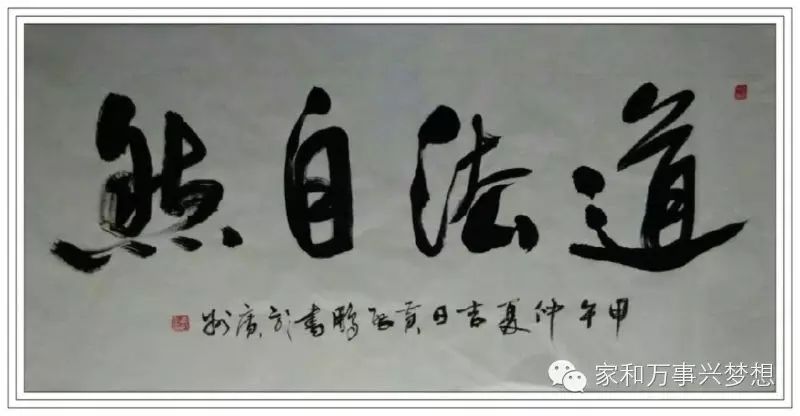 道法自然
甲午仲夏吉日黄鹏书于广州
家和万事兴梦想